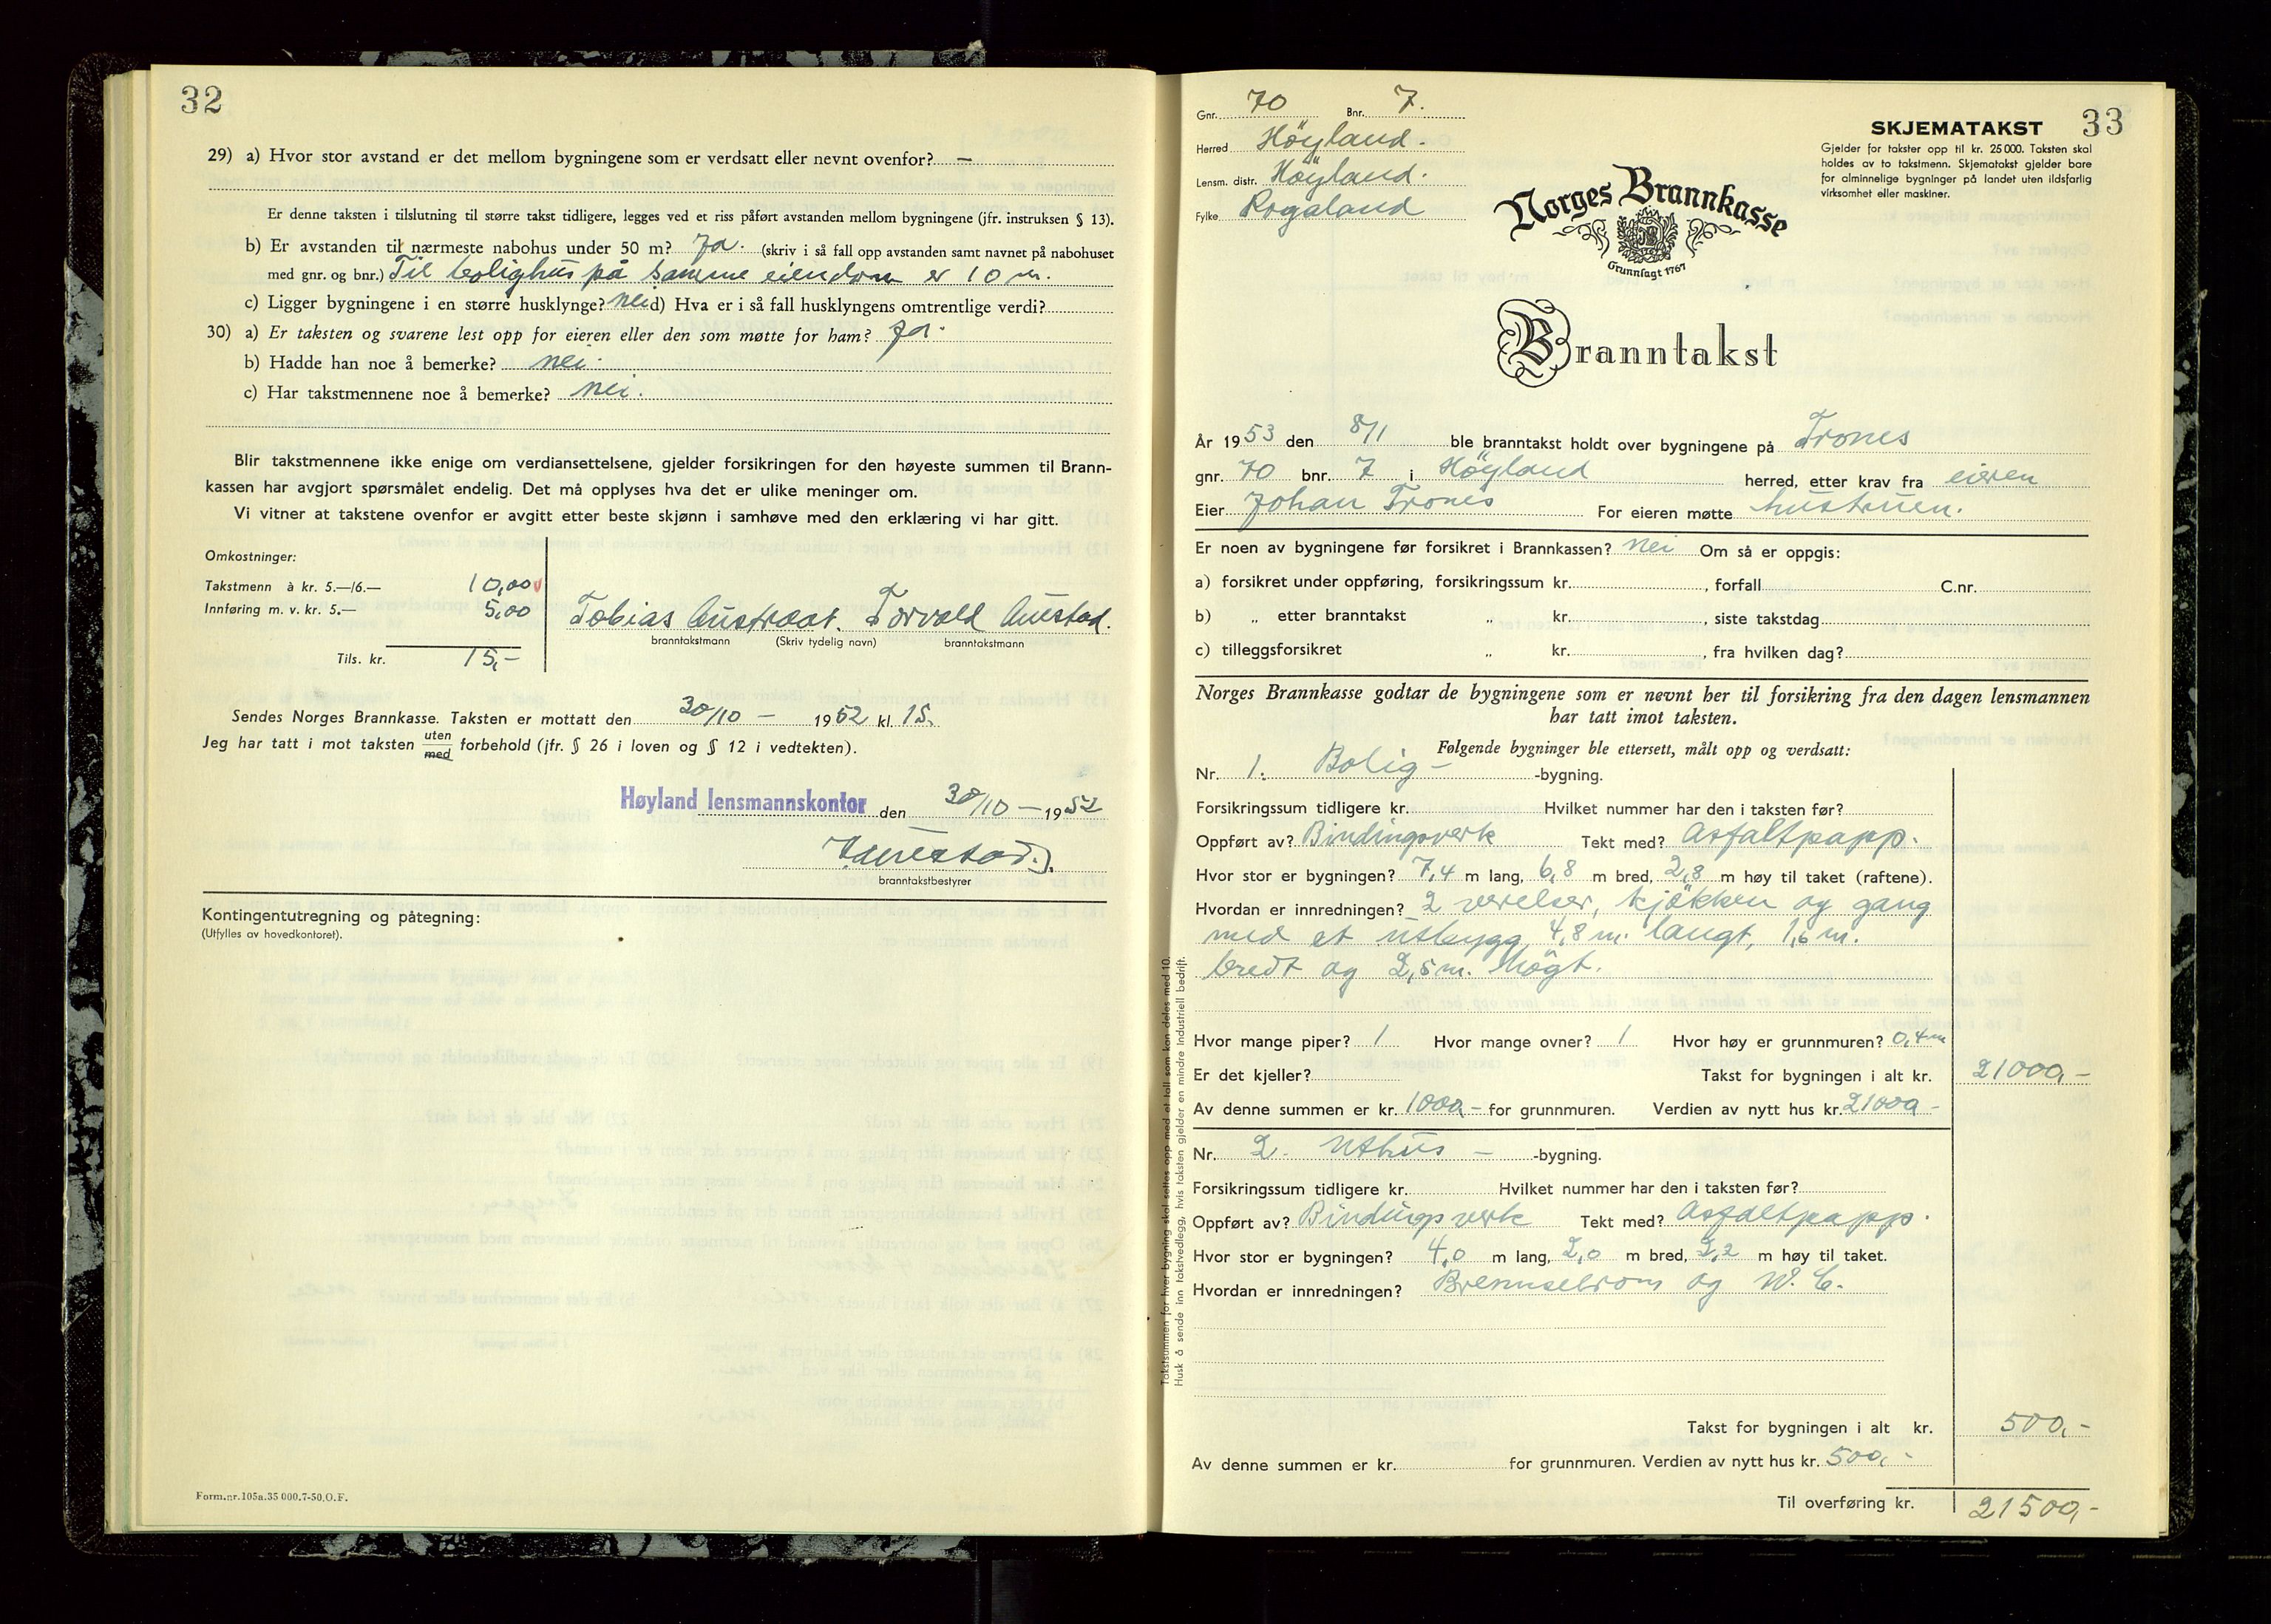 32
29) a) Hvor stor avstand er det mellom bygningene som er verdsatt eller nevnt ovenfor? —
Er denne taksten i tilslutning til større takst tidligere, legges ved et riss påført avstanden mellom bygningene (jfr. instruksen § 13).
b) Er avstanden til nærmeste nabohus under 50 m? Ja. (skriv i så fall opp avstanden samt navnet på nabohuset
med gnr. og bnr.) Til bolighus på samme eiendom er 10 m.
c) Ligger bygningene i en større husklynge? nei d) Hva er i så fall husklyngens omtrentlige verdi?
30) a) Er taksten og svarene lest opp for eieren eller den som møtte for ham? Ja.
b) Hadde han noe å bemerke? nei.
c) Har takstmennene noe å bemerke? nei.
Blir takstmennene ikke enige om verdiansettelsene, gjelder forsikringen for den høyeste summen til Brann-
kassen har avgjort spørsmålet endelig. Det må opplyses hva det er ulike meninger om.
Vi vitner at takstene ovenfor er avgitt etter beste skjønn i samhøve med den erklæring vi har gitt.
Omkostninger:
Takstmenn à kr. 5.—/6.— 10,00
Innføring m. v. kr. 5.— 5,00
Tils. kr. 15,-
Tobias Austraat. Torvald Austad.
branntakstmann (Skriv tydelig navn) branntakstmann
Sendes Norges Brannkasse. Taksten er mottatt den 30/10 — 1952 kl. 15.
Jeg har tatt i mot taksten uten/med forbehold (jfr. § 26 i loven og § 12 i vedtekten).
Høyland lensmannskontor den 30/10 — 1952
branntakstbestyrer
Kontingentutregning og påtegning:
(Utfylles av hovedkontoret).
Form.nr.105a.35 000.7-50.O.F.
33
Gnr. 70 Bnr. 7.
Herred Höyland.
Lensm. distr. Höyland.
Fylke Rogaland
SKJEMATAKST
Gjelder for takster opp til kr. 25 000. Taksten skal
holdes av to takstmenn. Skjematakst gjelder bare
for alminnelige bygninger på landet uten ildsfarlig
virksomhet eller maskiner.
Norges Brannkasse
Grunnlagt 1767
Branntakst
År 1953 den 8/1 ble branntakst holdt over bygningene på Trones
gnr. 70 bnr. 7 i Höyland herred, etter krav fra eieren
Eier Johan Trones For eieren møtte hustruen.
Er noen av bygningene før forsikret i Brannkassen? nei Om så er oppgis:
a) forsikret under oppføring, forsikringssum kr. , forfall C.nr.
b) „ etter branntakst „ kr. , siste takstdag
c) tilleggsforsikret „ kr. , fra hvilken dag?
Norges Brannkasse godtar de bygningene som er nevnt her til forsikring fra den dagen lensmannen
har tatt imot taksten.
Følgende bygninger ble ettersett, målt opp og verdsatt:
Nr. 1. Bolig- -bygning.
Forsikringssum tidligere kr. Hvilket nummer har den i taksten før?
Oppført av? Bindingsverk Tekt med? Asfaltpapp.
Hvor stor er bygningen? 7,4 m lang, 6,8 m bred, 2,8 m høy til taket (raftene).
Hvordan er innredningen? 2 værelser, kjökken og gang
med et utbygg 4,8 m. langt, 1,6 m.
bredt og 2,5 m. högt.
Hvor mange piper? 1 Hvor mange ovner? 1 Hvor høy er grunnmuren? 0,4 m
Er det kjeller? Takst for bygningen i alt kr. 21000,-
Av denne summen er kr. 1000,- for grunnmuren. Verdien av nytt hus kr. 21000,-
Nr. 2. Uthus - -bygning.
Forsikringssum tidligere kr. Hvilket nummer har den i taksten før?
Oppført av? Bindingsverk Tekt med? Asfaltpapp.
Hvor stor er bygningen? 4,0 m lang, 2,0 m bred, 2,2 m høy til taket.
Hvordan er innredningen? Brenselrom og W. C.
Takst for bygningen i alt kr. 500,-
Av denne summen er kr. for grunnmuren. Verdien av nytt hus kr. 500,-
Til overføring kr. 21500,-
Takstsummen for hver bygning skal settes opp med et tall som kan deles med 10.
Husk å sende inn takstvedlegg, hvis taksten gjelder en mindre industriell bedrift.